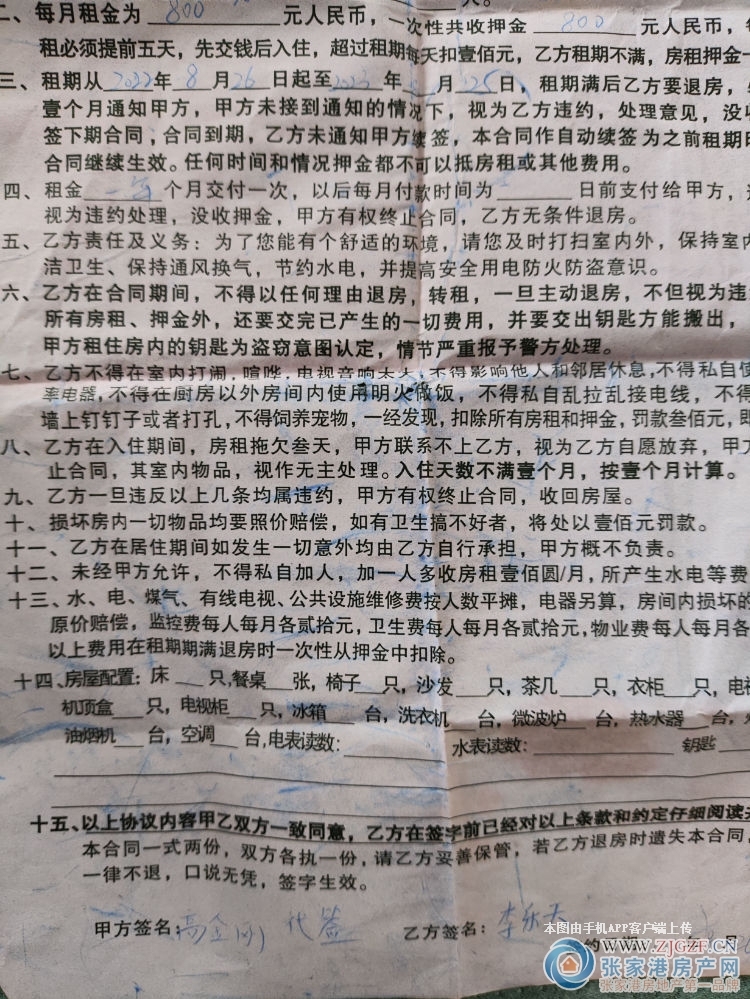 二、每月租金为 800 元人民币，一次性共收押金 800 元人民币，
租必须提前五天，先交钱后入住，超过租期每天扣壹佰元，乙方租期不满，房租押金一
三、租期从2022年8月26日起至2023年 月25日，租期满后乙方要退房，
壹个月通知甲方，甲方未接到通知的情况下，视为乙方违约，处理意见，没收
签下期合同，合同到期，乙方未通知甲方续签，本合同作自动续签为之前租期
合同继续生效。任何时间和情况押金都不可以抵房租或其他费用。
四、租金 一年 个月交付一次，以后每月付款时间为 日前支付给甲方，
视为违约处理，没收押金，甲方有权终止合同，乙方无条件退房。
五、乙方责任及义务：为了您能有个舒适的环境，请您及时打扫室内外，保持室内
洁卫生、保持通风换气，节约水电，并提高安全用电防火防盗意识。
六、乙方在合同期间，不得以任何理由退房，转租，一旦主动退房，不但视为违
所有房租、押金外，还要交完已产生的一切费用，并要交出钥匙方能搬出，
甲方租住房内的钥匙为盗窃意图认定，情节严重报予警方处理。
七、乙方不得在室内打闹，喧哗，电视音响太大，不得影响他人和邻居休息，不得私自使
率电器，不得在厨房以外房间内使用明火做饭，不得私自乱拉乱接电线，不得
墙上钉钉子或者打孔，不得饲养宠物，一经发现，扣除所有房租和押金，罚款叁佰元，
八、乙方在入住期间，房租拖欠叁天，甲方联系不上乙方，视为乙方自愿放弃，甲方
止合同，其室内物品，视作无主处理。入住天数不满壹个月，按壹个月计算。
九、乙方一旦违反以上几条均属违约，甲方有权终止合同，收回房屋。
十、损坏房内一切物品均要照价赔偿，如有卫生搞不好者，将处以壹佰元罚款。
十一、乙方在居住期间如发生一切意外均由乙方自行承担，甲方概不负责。
十二、未经甲方允许，不得私自加人，加一人多收房租壹佰圆/月，所产生水电等费
十三、水、电、煤气、有线电视、公共设施维修费按人数平摊，电器另算，房间内损坏的
原价赔偿，监控费每人每月各贰拾元，卫生费每人每月各贰拾元，物业费每人每月各
以上费用在租期期满退房时一次性从押金中扣除。
十四、房屋配置：床___只，餐桌___张，椅子___只，沙发___只，茶几___只，衣柜___只，电视
机顶盒___只，电视柜___只，冰箱___台，洗衣机___台，微波炉___台，热水器___台，
油烟机___台，空调___台，电表读数：________ 水表读数：________ 钥匙
十五、以上协议内容甲乙双方一致同意，乙方在签字前已经对以上条款和约定仔细阅读
本合同一式两份，双方各执一份，请乙方妥善保管，若乙方退房时遗失本合同，
一律不退，口说无凭，签字生效。
甲方签名：高金刚 代签 乙方签名：李乐天
本图由手机APP客户端上传
约 月
WWW.ZJGZF.CN
张家港房产网
张家港房地产第一品牌